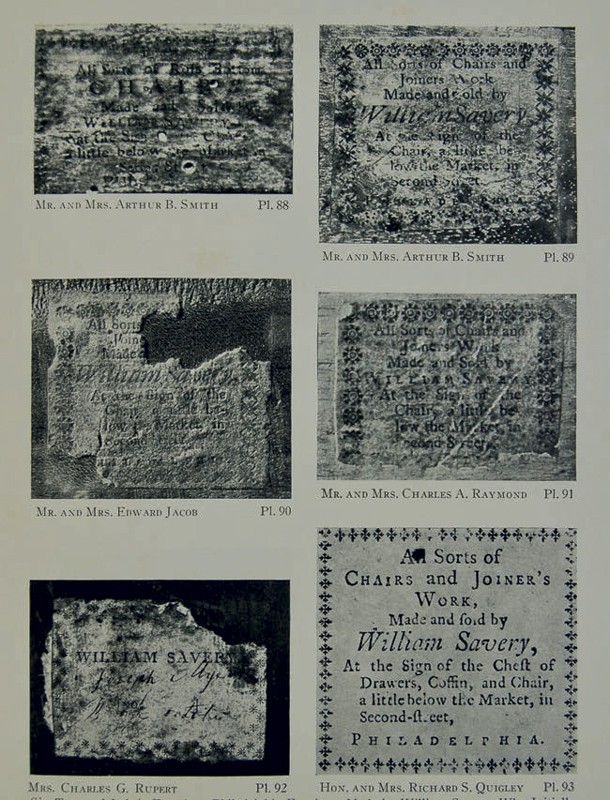 All Sorts of Rush Bottom
CHAIRS
Made and Sold by
WILLIAM SAVERY
at the Sign of the Chair
a little below the Market in
MR. AND MRS. ARTHUR B. SMITH Pl. 88
All Sorts of Chairs and
Joiners Work
Made and Sold by
William Savery
At the Sign of the
Chair, a little be-
low the Market, in
Second Street
PHILADELPHIA
MR. AND MRS. ARTHUR B. SMITH Pl. 89
All Sorts
Join
Made
William Savery,
At the Sign of the
Chair, a little be-
low the Market, in
Second
MR. AND MRS. EDWARD JACOB Pl. 90
All Sorts of Chairs and
Joiners Work
Made and Sold by
WILLIAM SAVERY
At the Sign of the
Chair, a little be-
low the Market, in
Second Street,
MR. AND MRS. CHARLES A. RAYMOND Pl. 91
WILLIAM SAVERY
Joseph
MRS. CHARLES G. RUPERT Pl. 92
All Sorts of
CHAIRS and JOINER'S
WORK,
Made and ſold by
William Savery,
At the Sign of the Cheſt of
Drawers, Coffin, and Chair,
a little below the Market, in
Second-ſtreet,
PHILADELPHIA.
HON. AND MRS. RICHARD S. QUIGLEY Pl. 93